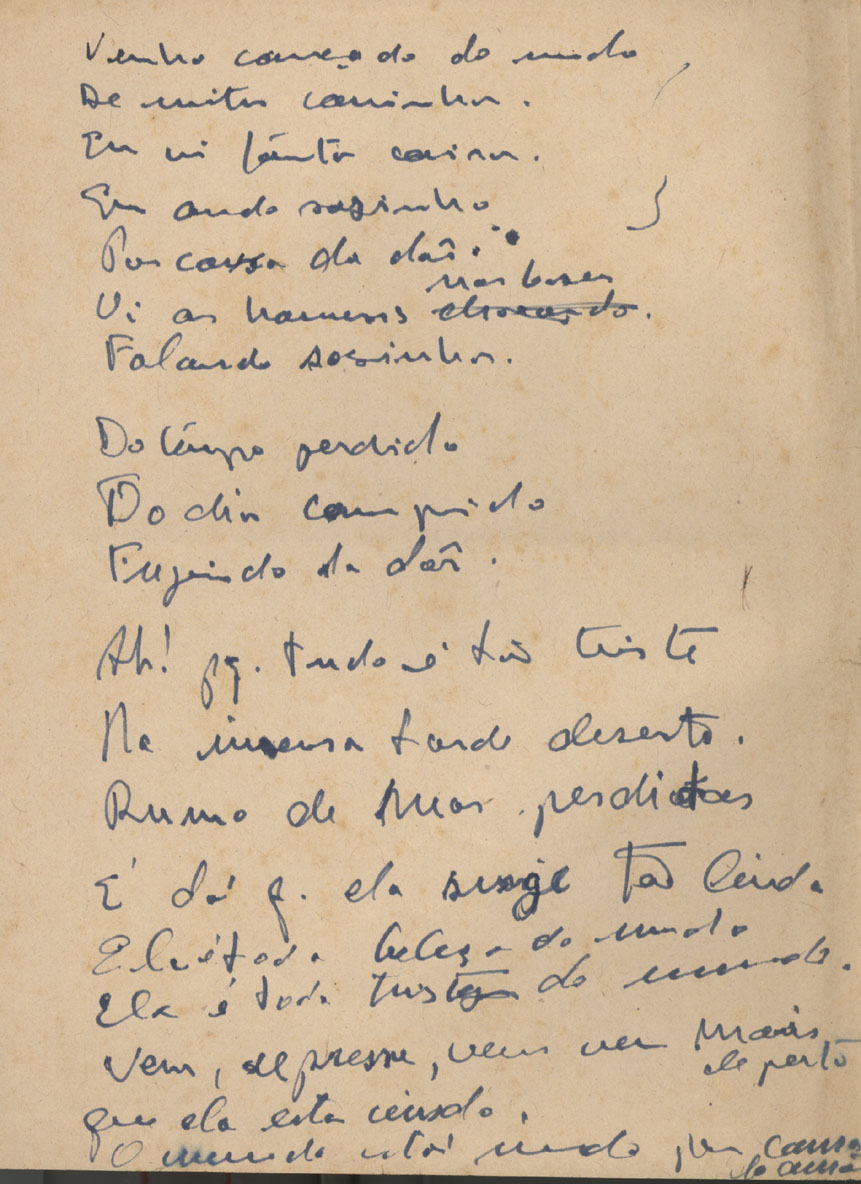 Venho cansado do mundo
De muitos caminhos.
Eu vi tanta coisa.
Eu ando sosinho
Por causa da dôr.
Vi os homens chorando.
nos bares
Falando sosinhos.
Do tempo perdido
Do dia comprido
Fugindo da dôr.
Ah! pq. tudo é tão triste
Na imensa tarde deserta.
Rumo de perdidas
É dá q. ela surge tão linda
Ela é toda beleza do mundo
Ela é toda tristeza do mundo.
Vem, depressa, vem ver mais
de perto
que ela esta vindo.
O mundo está indo por causa